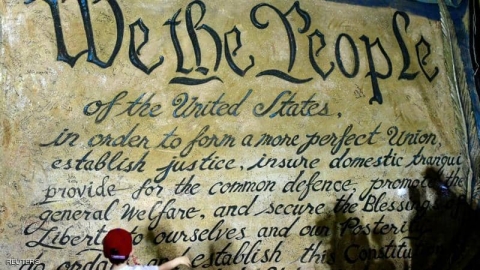 We the People
of the United States,
in order to form a more perfect Union,
establish justice, insure domestic tranqui
provide for the common defence, promote the
general Welfare, and secure the Blessing
Liberty to ourselves and our Posterity
establish this Constitu
REUTERS